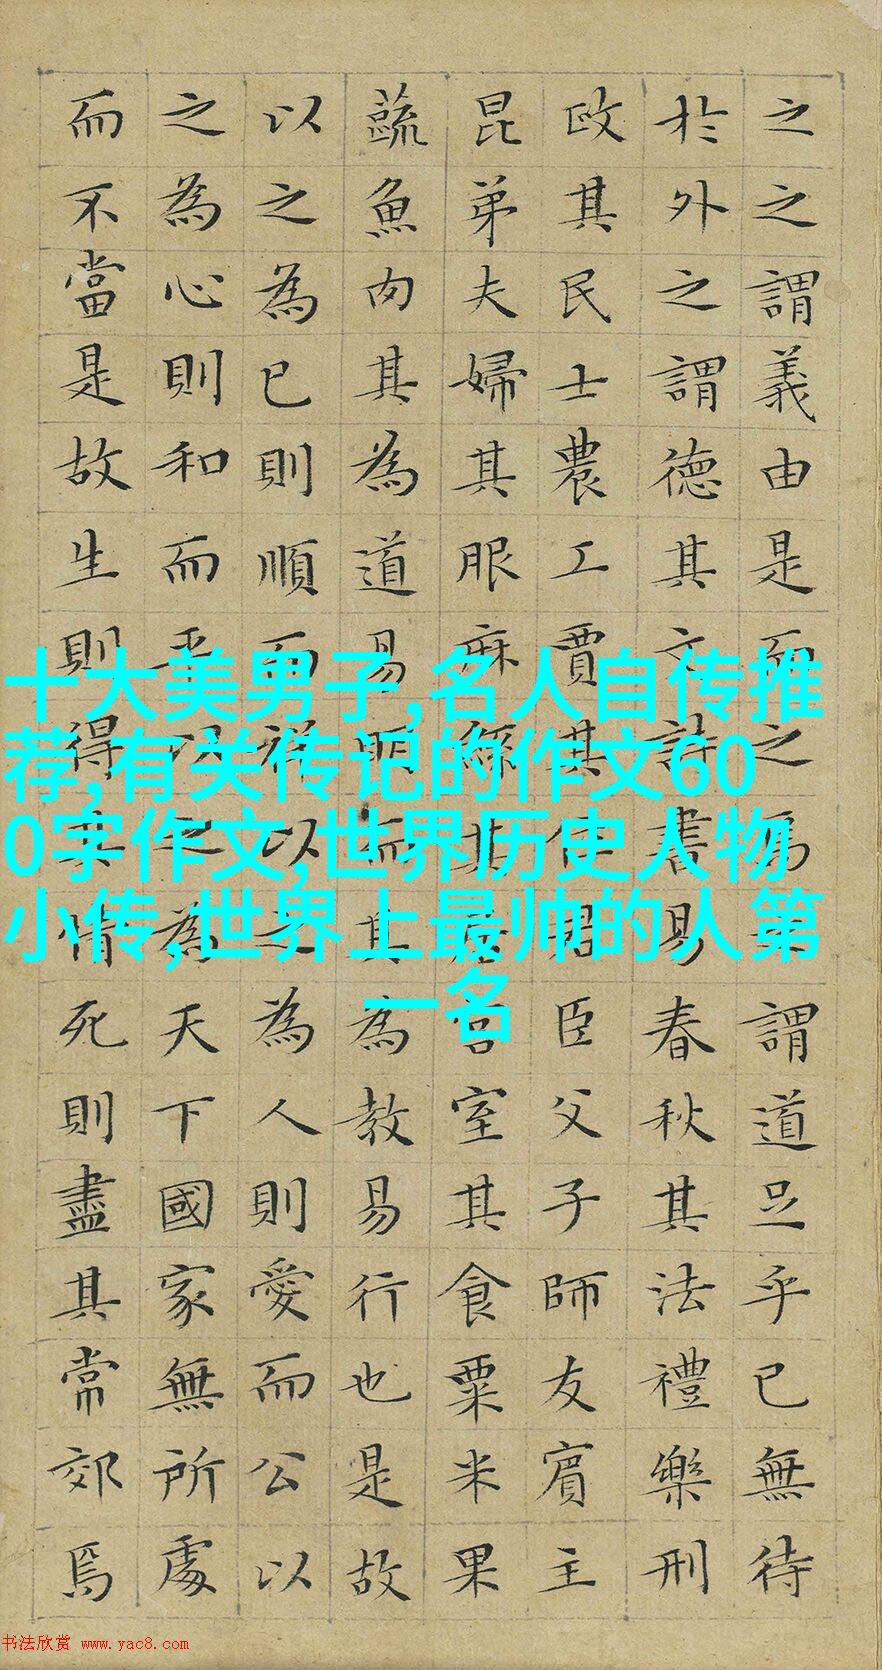 之之謂義由是而之焉之謂道足乎已無待
於外之謂德其文詩書易春秋其法禮樂刑
政其民士農工賈其位君臣父子師友賓主
昆弟夫婦其服麻絲其居宮室其食粟米果
蔬魚肉其為道易明而其為教易行也是故
以之為己則順而祥以之為人則愛而公以
之為心則和而平以之為天下國家無所處
而不當是故生則得其情死則盡其常郊焉
十大美男子,名人自传推
荐,有关传记的作文60
0字作文,世界历史人物
小传,世界上最帅的人第
一名
书法欣赏 www.yac8.com